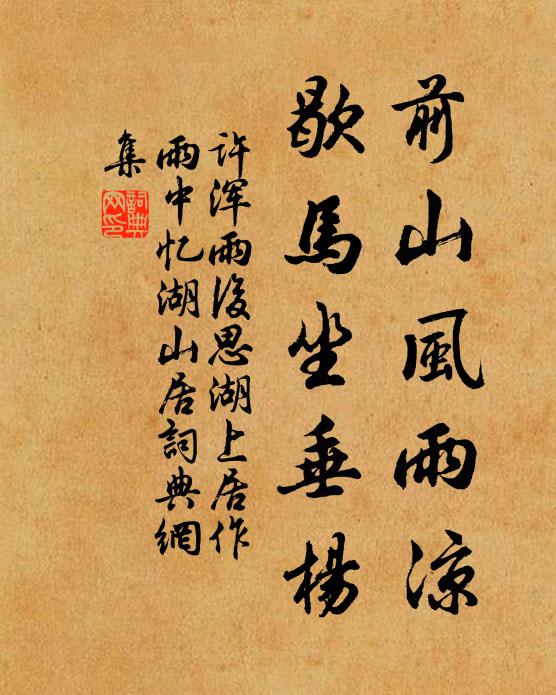 前山風雨涼
歇馬坐垂楊
许浑雨後思湖上居作
雨中忆湖山居詞典網
集
詞典網印